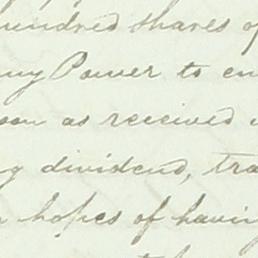 hundred shares of
Power to en
soon as received
dividend, tra
hopes of having